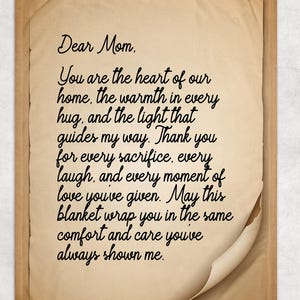 Dear Mom,
You are the heart of our
home, the warmth in every
hug, and the light that
guides my way. Thank you
for every sacrifice, every
laugh, and every moment of
love you've given. May this
blanket wrap you in the same
comfort and care you've
always shown me.